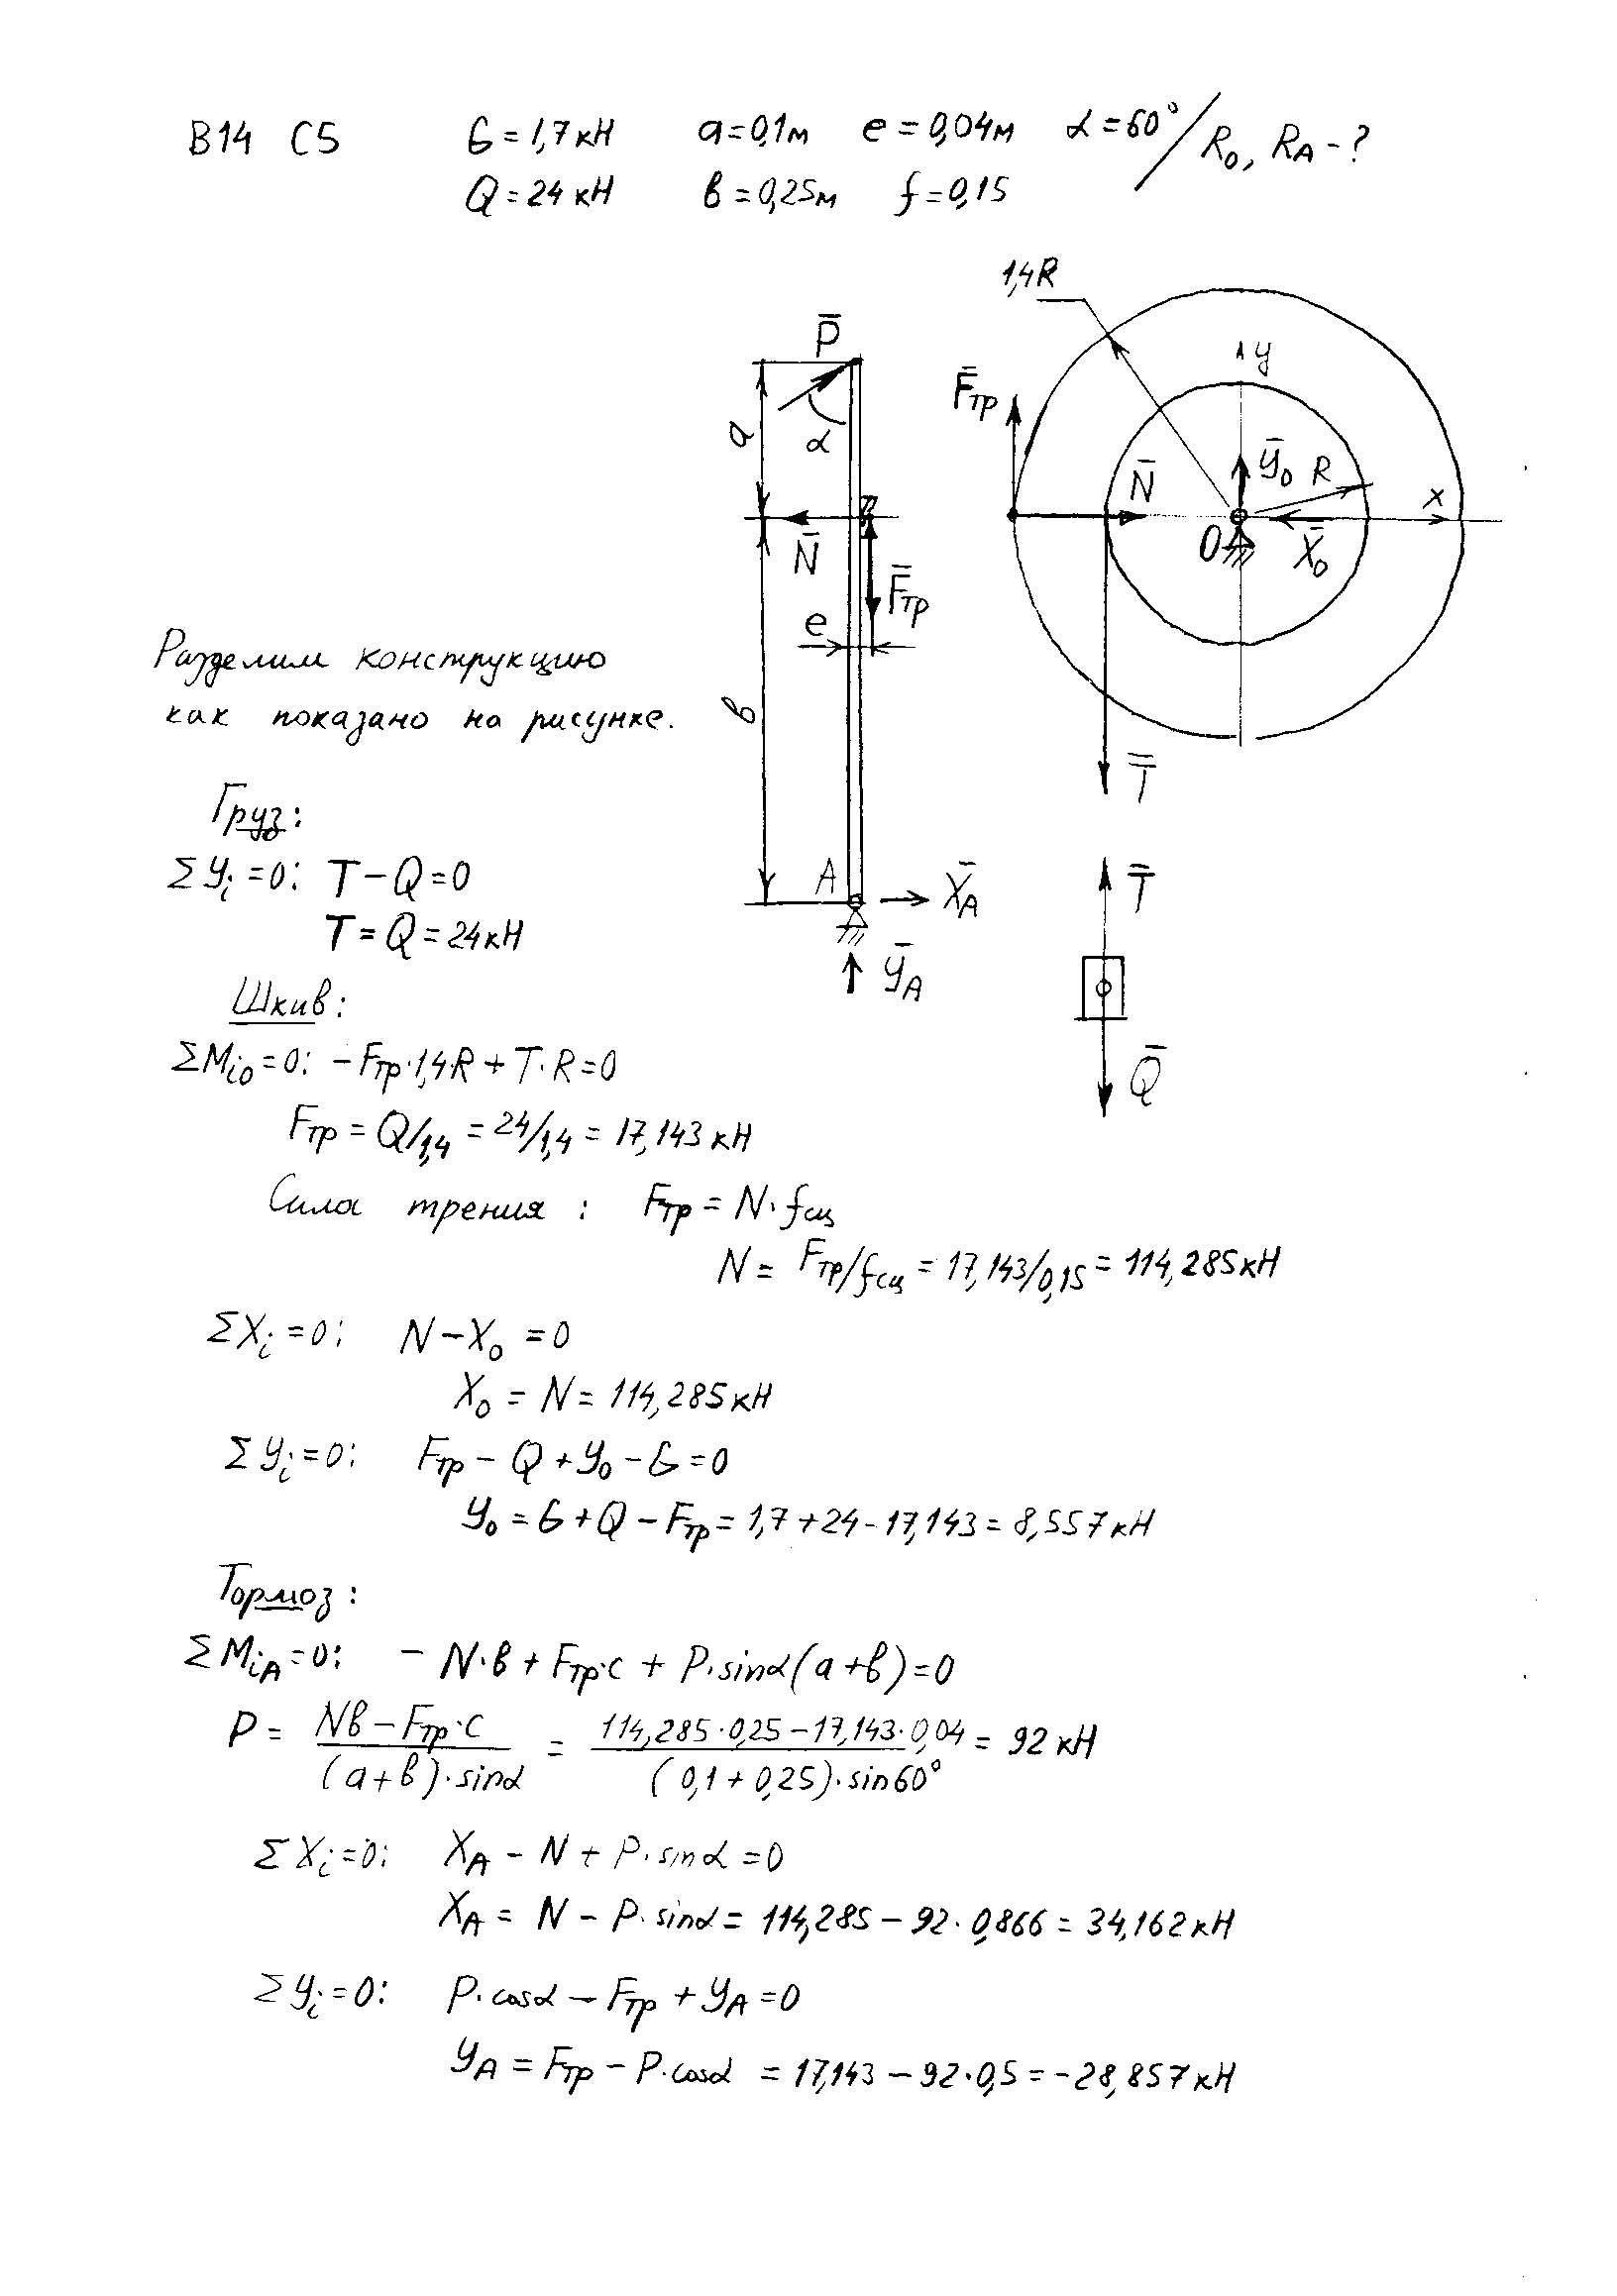 В14 С5 G = 1,7 кН a = 0,1 м e = 0,04 м α = 60° / R₀, R_A - ?
Q = 24 кН в = 0,25 м f = 0,15
1,4R
P̄
y
F̄тр
a
α
Ȳ₀ R
N̄
x
O
X̄₀
N̄
F̄тр
e
Разделим конструкцию
как показано на рисунке.
в
T̄
Груз:
ΣYᵢ = 0: T - Q = 0
A
X̄_A
T̄
T = Q = 24 кН
Ȳ_A
Шкив:
ΣMᵢ₀ = 0: - Fтр·1,4·R + T·R = 0
Q̄
Fтр = Q/1,4 = 24/1,4 = 17,143 кН
Сила трения: Fтр = N·fсц
N = Fтр/fсц = 17,143/0,15 = 114,285 кН
ΣXᵢ = 0: N - X₀ = 0
X₀ = N = 114,285 кН
ΣYᵢ = 0: Fтр - Q + Y₀ - G = 0
Y₀ = G + Q - Fтр = 1,7 + 24 - 17,143 = 8,557 кН
Тормоз:
ΣMᵢA = 0: - N·в + Fтр·c + P·sinα(a+в) = 0
P = (Nв - Fтр·c) / ((a+в)·sinα) = (114,285·0,25 - 17,143·0,04) / ((0,1+0,25)·sin60°) = 92 кН
ΣXᵢ = 0: X_A - N + P·sinα = 0
X_A = N - P·sinα = 114,285 - 92·0,866 = 34,162 кН
ΣYᵢ = 0: P·cosα - Fтр + Y_A = 0
Y_A = Fтр - P·cosα = 17,143 - 92·0,5 = -28,857 кН